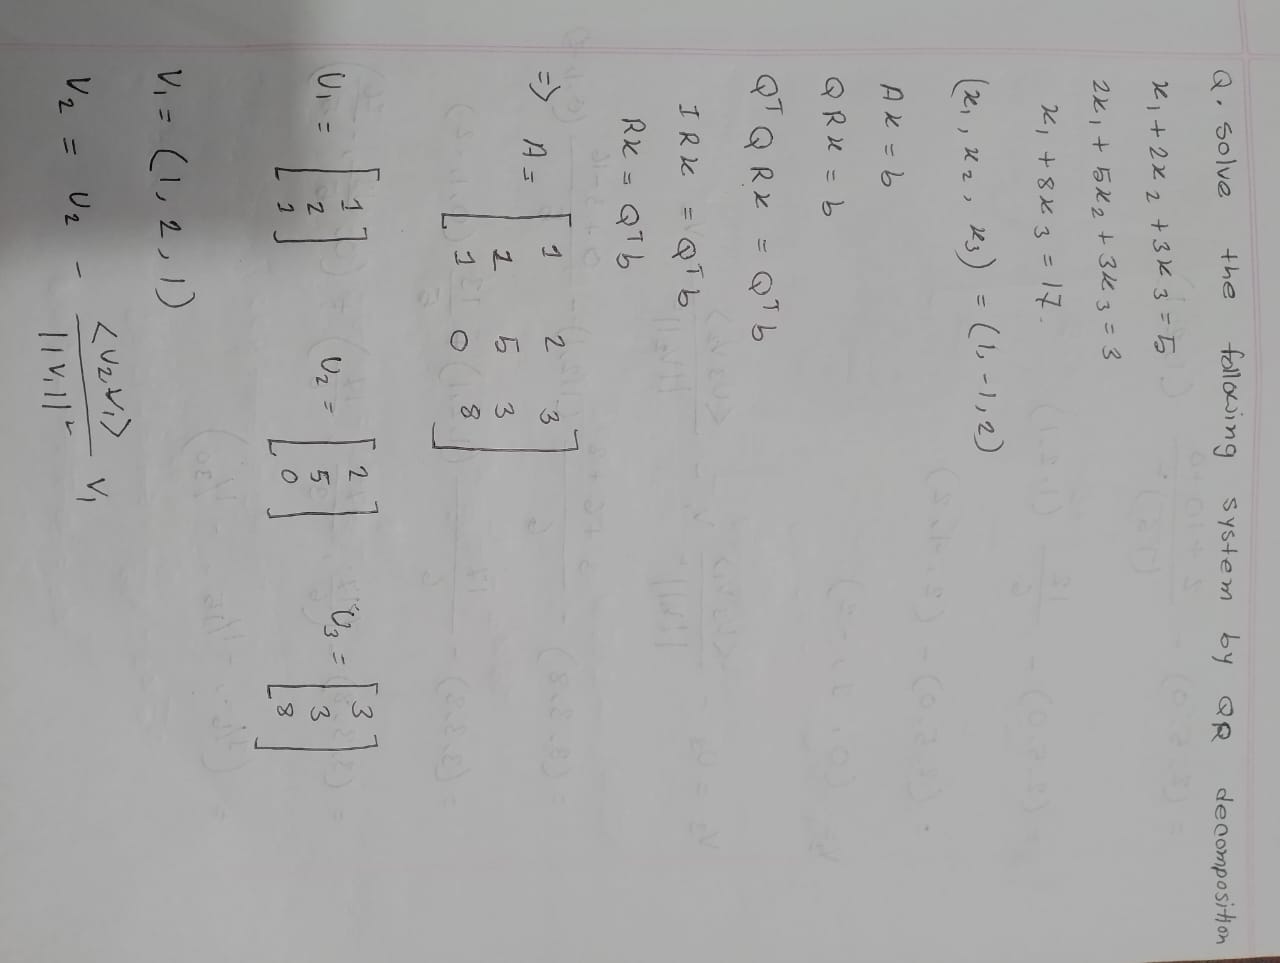 Q. solve the following system by QR decomposition
x₁ + 2x₂ + 3x₃ = 5
2x₁ + 5x₂ + 3x₃ = 3
x₁ + 8x₃ = 17.
(x₁, x₂, x₃) = (1, -1, 2)
Ax = b
QRx = b
QᵀQRx = Qᵀb
IRx = Qᵀb
Rx = Qᵀb
⇒ A = [1 2 3
2 5 3
1 0 8]
U₁ = [1 2 1] U₂ = [2 5 0] U₃ = [3 3 8]
V₁ = (1, 2, 1)
V₂ = U₂ - <U₂V₁> / ||V₁||² V₁